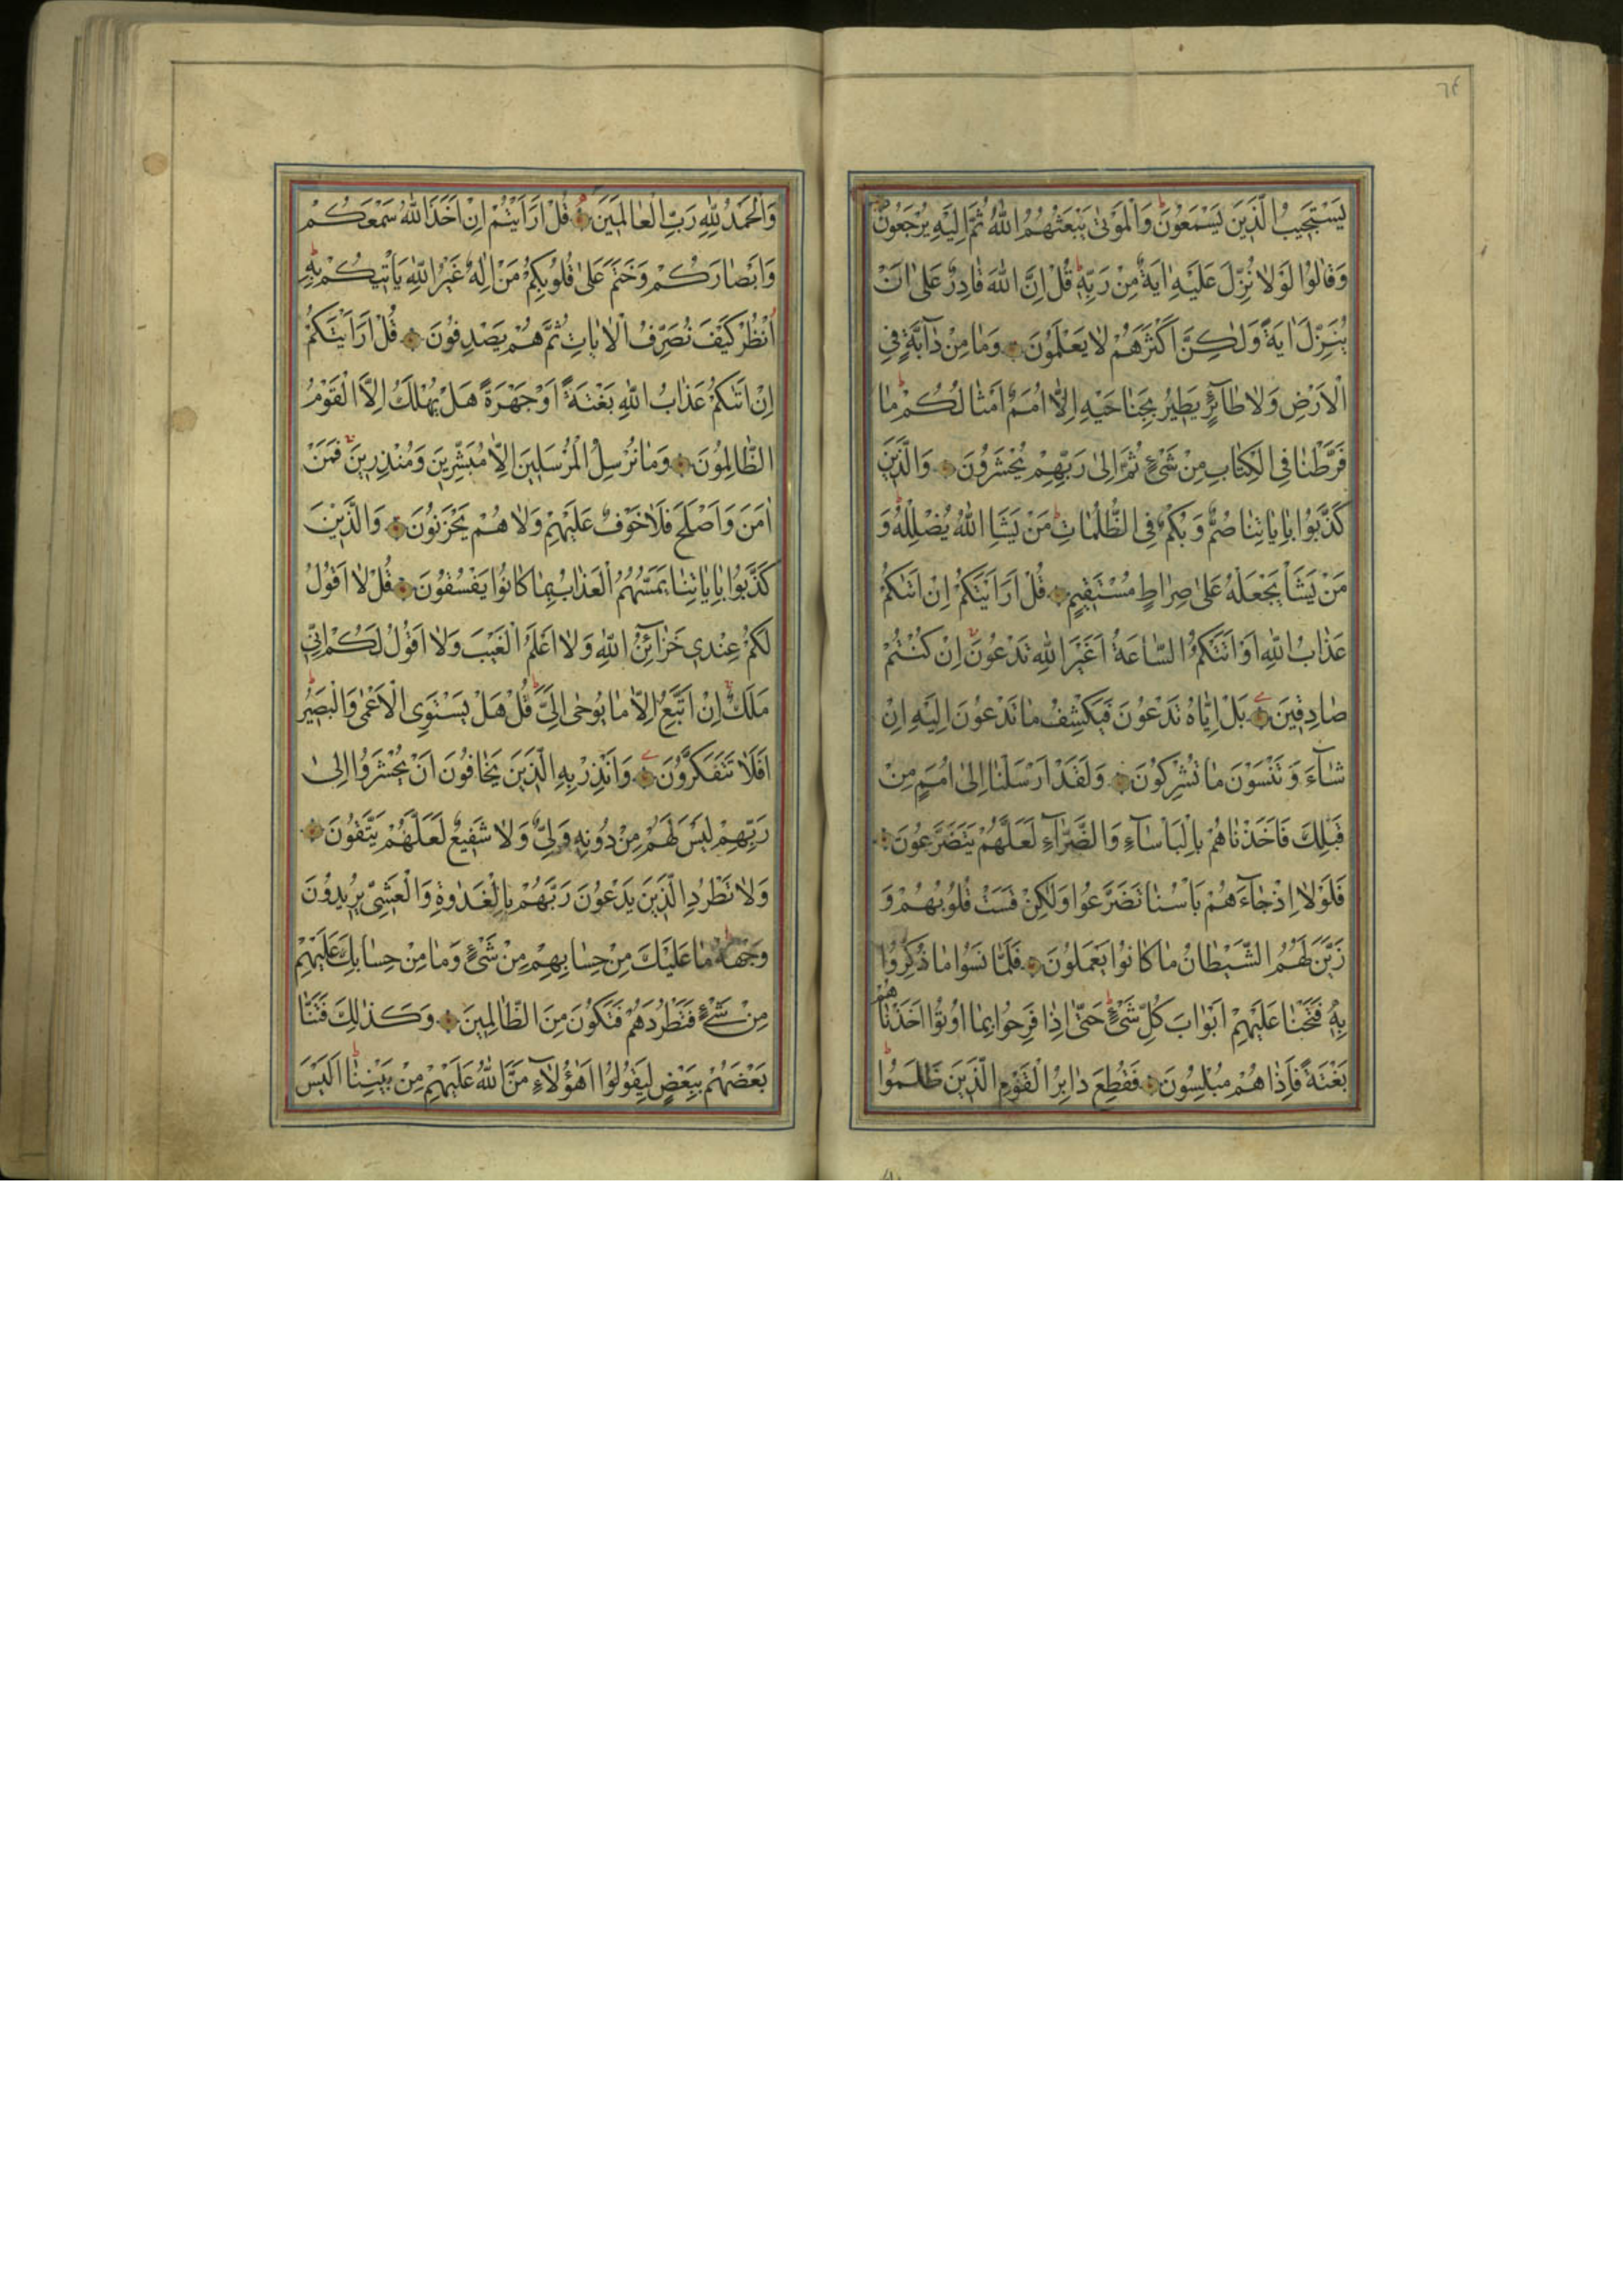 ٦٤
يَسْتَجِيبُ الَّذِينَ يَسْمَعُونَ وَالْمَوْتىٰ يَبْعَثُهُمُ اللّٰهُ ثُمَّ اِلَيْهِ يُرْجَعُونَ
وَقٰالُوا لَوْلٰا نُزِّلَ عَلَيْهِ اٰيَةٌ مِنْ رَبِّهِ قُلْ اِنَّ اللّٰهَ قٰادِرٌ عَلىٰ اَنْ
يُنَزِّلَ اٰيَةً وَلٰكِنَّ اَكْثَرَهُمْ لٰا يَعْلَمُونَ وَمٰا مِنْ دٰآبَّةٍ فِي
الْاَرْضِ وَلٰا طٰآئِرٍ يَطِيرُ بِجَنٰاحَيْهِ اِلّٰا اُمَمٌ اَمْثٰالُكُمْ مٰا
فَرَّطْنٰا فِي الْكِتٰابِ مِنْ شَيْءٍ ثُمَّ اِلىٰ رَبِّهِمْ يُحْشَرُونَ وَالَّذِينَ
كَذَّبُوا بِاٰيٰاتِنٰا صُمٌّ وَبُكْمٌ فِي الظُّلُمٰاتِ مَنْ يَشَاِ اللّٰهُ يُضْلِلْهُ وَ
مَنْ يَشَأْ يَجْعَلْهُ عَلىٰ صِرٰاطٍ مُسْتَقِيمٍ قُلْ اَرَاَيْتَكُمْ اِنْ اَتٰىكُمْ
عَذٰابُ اللّٰهِ اَوْ اَتَتْكُمُ السّٰاعَةُ اَغَيْرَ اللّٰهِ تَدْعُونَ اِنْ كُنْتُمْ
صٰادِقِينَ بَلْ اِيّٰاهُ تَدْعُونَ فَيَكْشِفُ مٰا تَدْعُونَ اِلَيْهِ اِنْ
شٰآءَ وَتَنْسَوْنَ مٰا تُشْرِكُونَ وَلَقَدْ اَرْسَلْنٰا اِلىٰ اُمَمٍ مِنْ
قَبْلِكَ فَاَخَذْنٰاهُمْ بِالْبَأْسٰآءِ وَالضَّرّٰآءِ لَعَلَّهُمْ يَتَضَرَّعُونَ
فَلَوْلٰا اِذْ جٰآءَهُمْ بَأْسُنٰا تَضَرَّعُوا وَلٰكِنْ قَسَتْ قُلُوبُهُمْ وَ
زَيَّنَ لَهُمُ الشَّيْطٰانُ مٰا كٰانُوا يَعْمَلُونَ فَلَمّٰا نَسُوا مٰا ذُكِّرُوا
بِهِ فَتَحْنٰا عَلَيْهِمْ اَبْوٰابَ كُلِّ شَيْءٍ حَتّٰى اِذٰا فَرِحُوا بِمٰا اُوتُوا اَخَذْنٰاهُمْ
بَغْتَةً فَاِذٰا هُمْ مُبْلِسُونَ فَقُطِعَ دٰابِرُ الْقَوْمِ الَّذِينَ ظَلَمُوا
وَالْحَمْدُ لِلّٰهِ رَبِّ الْعٰالَمِينَ قُلْ اَرَاَيْتُمْ اِنْ اَخَذَ اللّٰهُ سَمْعَكُمْ
وَاَبْصٰارَكُمْ وَخَتَمَ عَلىٰ قُلُوبِكُمْ مَنْ اِلٰهٌ غَيْرُ اللّٰهِ يَأْتِيكُمْ بِهِ
اُنْظُرْ كَيْفَ نُصَرِّفُ الْاٰيٰاتِ ثُمَّ هُمْ يَصْدِفُونَ قُلْ اَرَاَيْتَكُمْ
اِنْ اَتٰىكُمْ عَذٰابُ اللّٰهِ بَغْتَةً اَوْ جَهْرَةً هَلْ يُهْلَكُ اِلَّا الْقَوْمُ
الظّٰالِمُونَ وَمٰا نُرْسِلُ الْمُرْسَلِينَ اِلّٰا مُبَشِّرِينَ وَمُنْذِرِينَ فَمَنْ
اٰمَنَ وَاَصْلَحَ فَلٰا خَوْفٌ عَلَيْهِمْ وَلٰا هُمْ يَحْزَنُونَ وَالَّذِينَ
كَذَّبُوا بِاٰيٰاتِنٰا يَمَسُّهُمُ الْعَذٰابُ بِمٰا كٰانُوا يَفْسُقُونَ قُلْ لٰا اَقُولُ
لَكُمْ عِنْدِي خَزٰآئِنُ اللّٰهِ وَلٰا اَعْلَمُ الْغَيْبَ وَلٰا اَقُولُ لَكُمْ اِنِّي
مَلَكٌ اِنْ اَتَّبِعُ اِلّٰا مٰا يُوحىٰ اِلَيَّ قُلْ هَلْ يَسْتَوِي الْاَعْمىٰ وَالْبَصِيرُ
اَفَلٰا تَتَفَكَّرُونَ وَاَنْذِرْ بِهِ الَّذِينَ يَخٰافُونَ اَنْ يُحْشَرُوا اِلىٰ
رَبِّهِمْ لَيْسَ لَهُمْ مِنْ دُونِهِ وَلِيٌّ وَلٰا شَفِيعٌ لَعَلَّهُمْ يَتَّقُونَ
وَلٰا تَطْرُدِ الَّذِينَ يَدْعُونَ رَبَّهُمْ بِالْغَدٰوةِ وَالْعَشِيِّ يُرِيدُونَ
وَجْهَهُ مٰا عَلَيْكَ مِنْ حِسٰابِهِمْ مِنْ شَيْءٍ وَمٰا مِنْ حِسٰابِكَ عَلَيْهِمْ
مِنْ شَيْءٍ فَتَطْرُدَهُمْ فَتَكُونَ مِنَ الظّٰالِمِينَ وَكَذٰلِكَ فَتَنّٰا
بَعْضَهُمْ بِبَعْضٍ لِيَقُولُوا اَهٰؤُلٰآءِ مَنَّ اللّٰهُ عَلَيْهِمْ مِنْ بَيْنِنٰا اَلَيْسَ